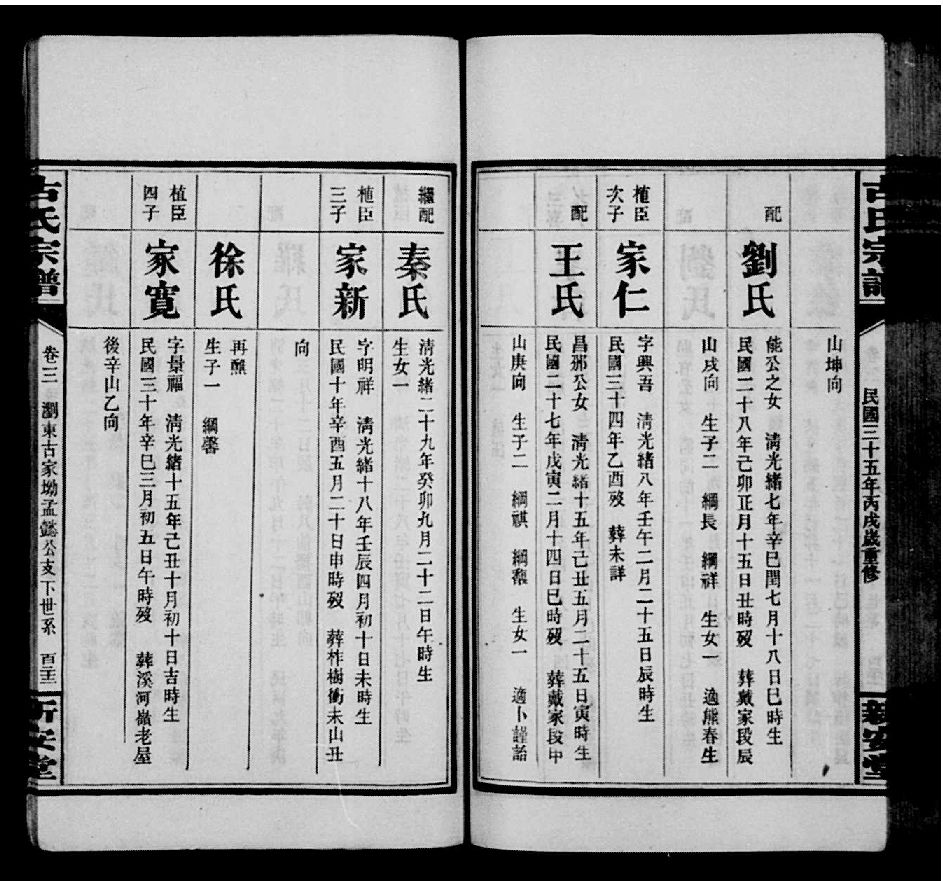 古氏宗譜
民國三十五年丙戌歲重修
新安堂
山坤向
配
劉氏
能公之女 清光緒七年辛巳閏七月十八日巳時生
民國二十八年己卯正月十五日丑時歿 葬戴家段辰
山戌向 生子二 綱長 綱祥 生女一 適熊春生
植臣
次子
家仁
字興吾 清光緒八年壬午二月二十五日辰時生
民國三十四年乙酉歿 葬未詳
配
王氏
昌邠公女 清光緒十五年己丑五月二十五日寅時生
民國二十七年戊寅二月十四日巳時歿 葬戴家段甲
山庚向 生子二 綱祺 綱馥 生女一 適卜謹詒
繼配
秦氏
清光緒二十九年癸卯九月二十二日午時生
生女一
植臣
三子
家新
字明祥 清光緒十八年壬辰四月初十日未時生
民國十年辛酉五月二十日申時歿 葬柞樹衝未山丑
向
徐氏
再醮
生子一 綱馨
植臣
四子
家寬
字景福 清光緒十五年己丑十月初十日吉時生
民國三十年辛巳三月初五日午時歿 葬溪河嶺老屋
後辛山乙向
古氏宗譜
卷三 瀏東古家坳孟懿公支下世系
新安堂